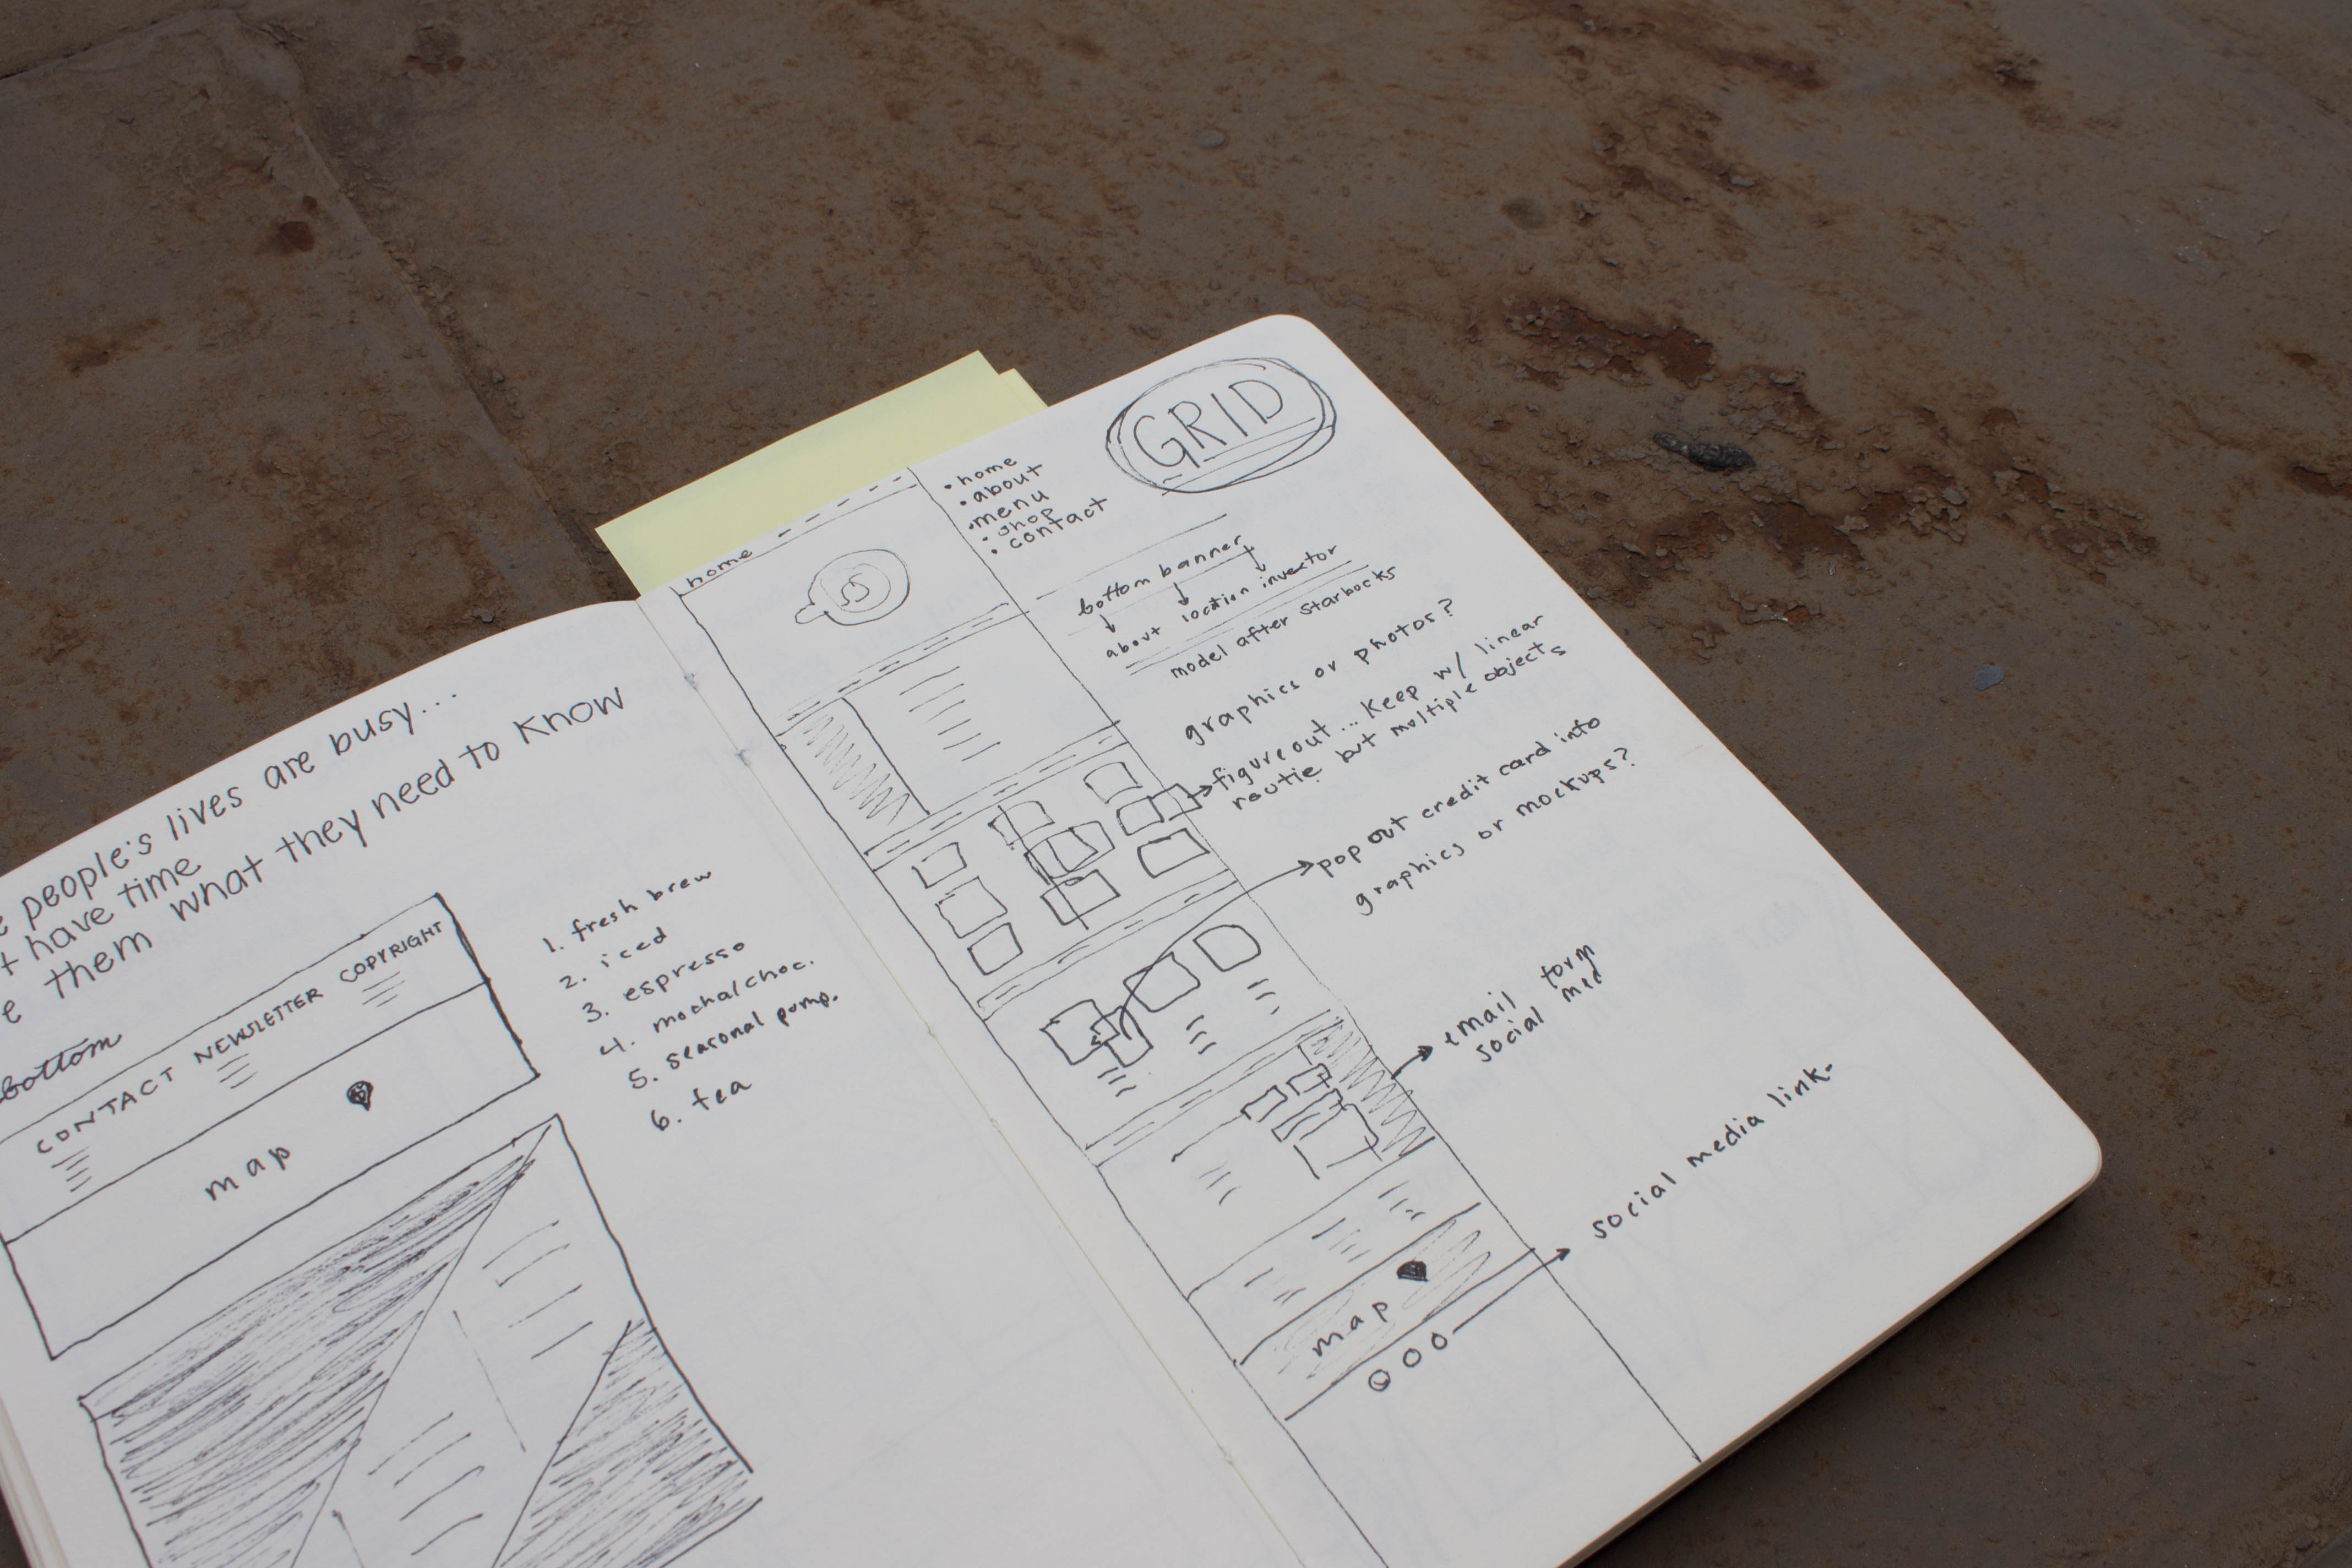 people's lives are busy...
have time
them what they need to know
bottom
CONTACT NEWSLETTER COPYRIGHT
map
1. fresh brew
2. iced
3. espresso
4. mocha/choc.
5. seasonal pump.
6. tea
home
• home
• about
• menu
• shop
• contact
GRID
bottom banner
about location investor
model after starbucks
graphics or photos?
figure out... Keep w/ linear
routie but multiple objects
pop out credit card into
graphics or mockups?
email form
social med
map
social media link.